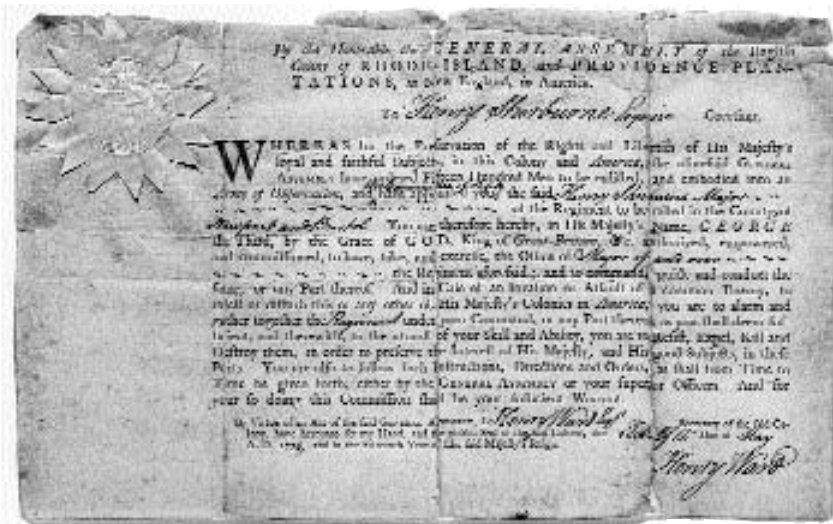 By the Honorable the GENERAL ASSEMBLY of the English
Colony of RHODE-ISLAND, and PROVIDENCE PLAN-
TATIONS, in New England, in America.
To Henry Sherburne Esquire Greeting.
WHEREAS for the Preservation of the Rights and Liberties of His Majesty's
loyal and faithful Subjects in this Colony and America, the aforesaid GENERAL
ASSEMBLY have ordered Fifteen Hundred Men to be inlisted, and embodied into an
Army of Observation, and have appointed you the said Henry Sherburne Major
of the Regiment to be raised in the Counties of
Newport and Bristol You are therefore hereby, in His Majesty's Name, GEORGE
the Third, by the Grace of GOD, King of Great-Britain, &c. authorized, empowered,
and commissioned, to have, take, and exercise, the Office of Major of and over
the Regiment aforesaid; and to command, guide and conduct the
same, or any Part thereof. And in Case of an Invasion or Assault of a common Enemy, to
infest or disturb this or any other of His Majesty's Colonies in America, you are to alarm and
gather together the Regiment under your Command, or any Part thereof, as you shall deem
and therewith, to the utmost of your Skill and Ability, you are to resist, expel, kill and
destroy them, in order to preserve the Interest of His Majesty, and His good Subjects, in these
Parts. You are also to follow such Instructions, Directions and Orders, as shall from Time to
Time be given forth, either by the GENERAL ASSEMBLY or your superior Officers. And for
your so doing this Commission shall be your sufficient Warrant.
By Virtue of an Act of the said General Assembly, I Henry Ward Esq Secretary of the said Co-
lony, have hereunto set my Hand, and the public Seal of the said Colony, this Day of May
A. D. 1775, and in the Fifteenth Year of His said Majesty's Reign.
Henry Ward